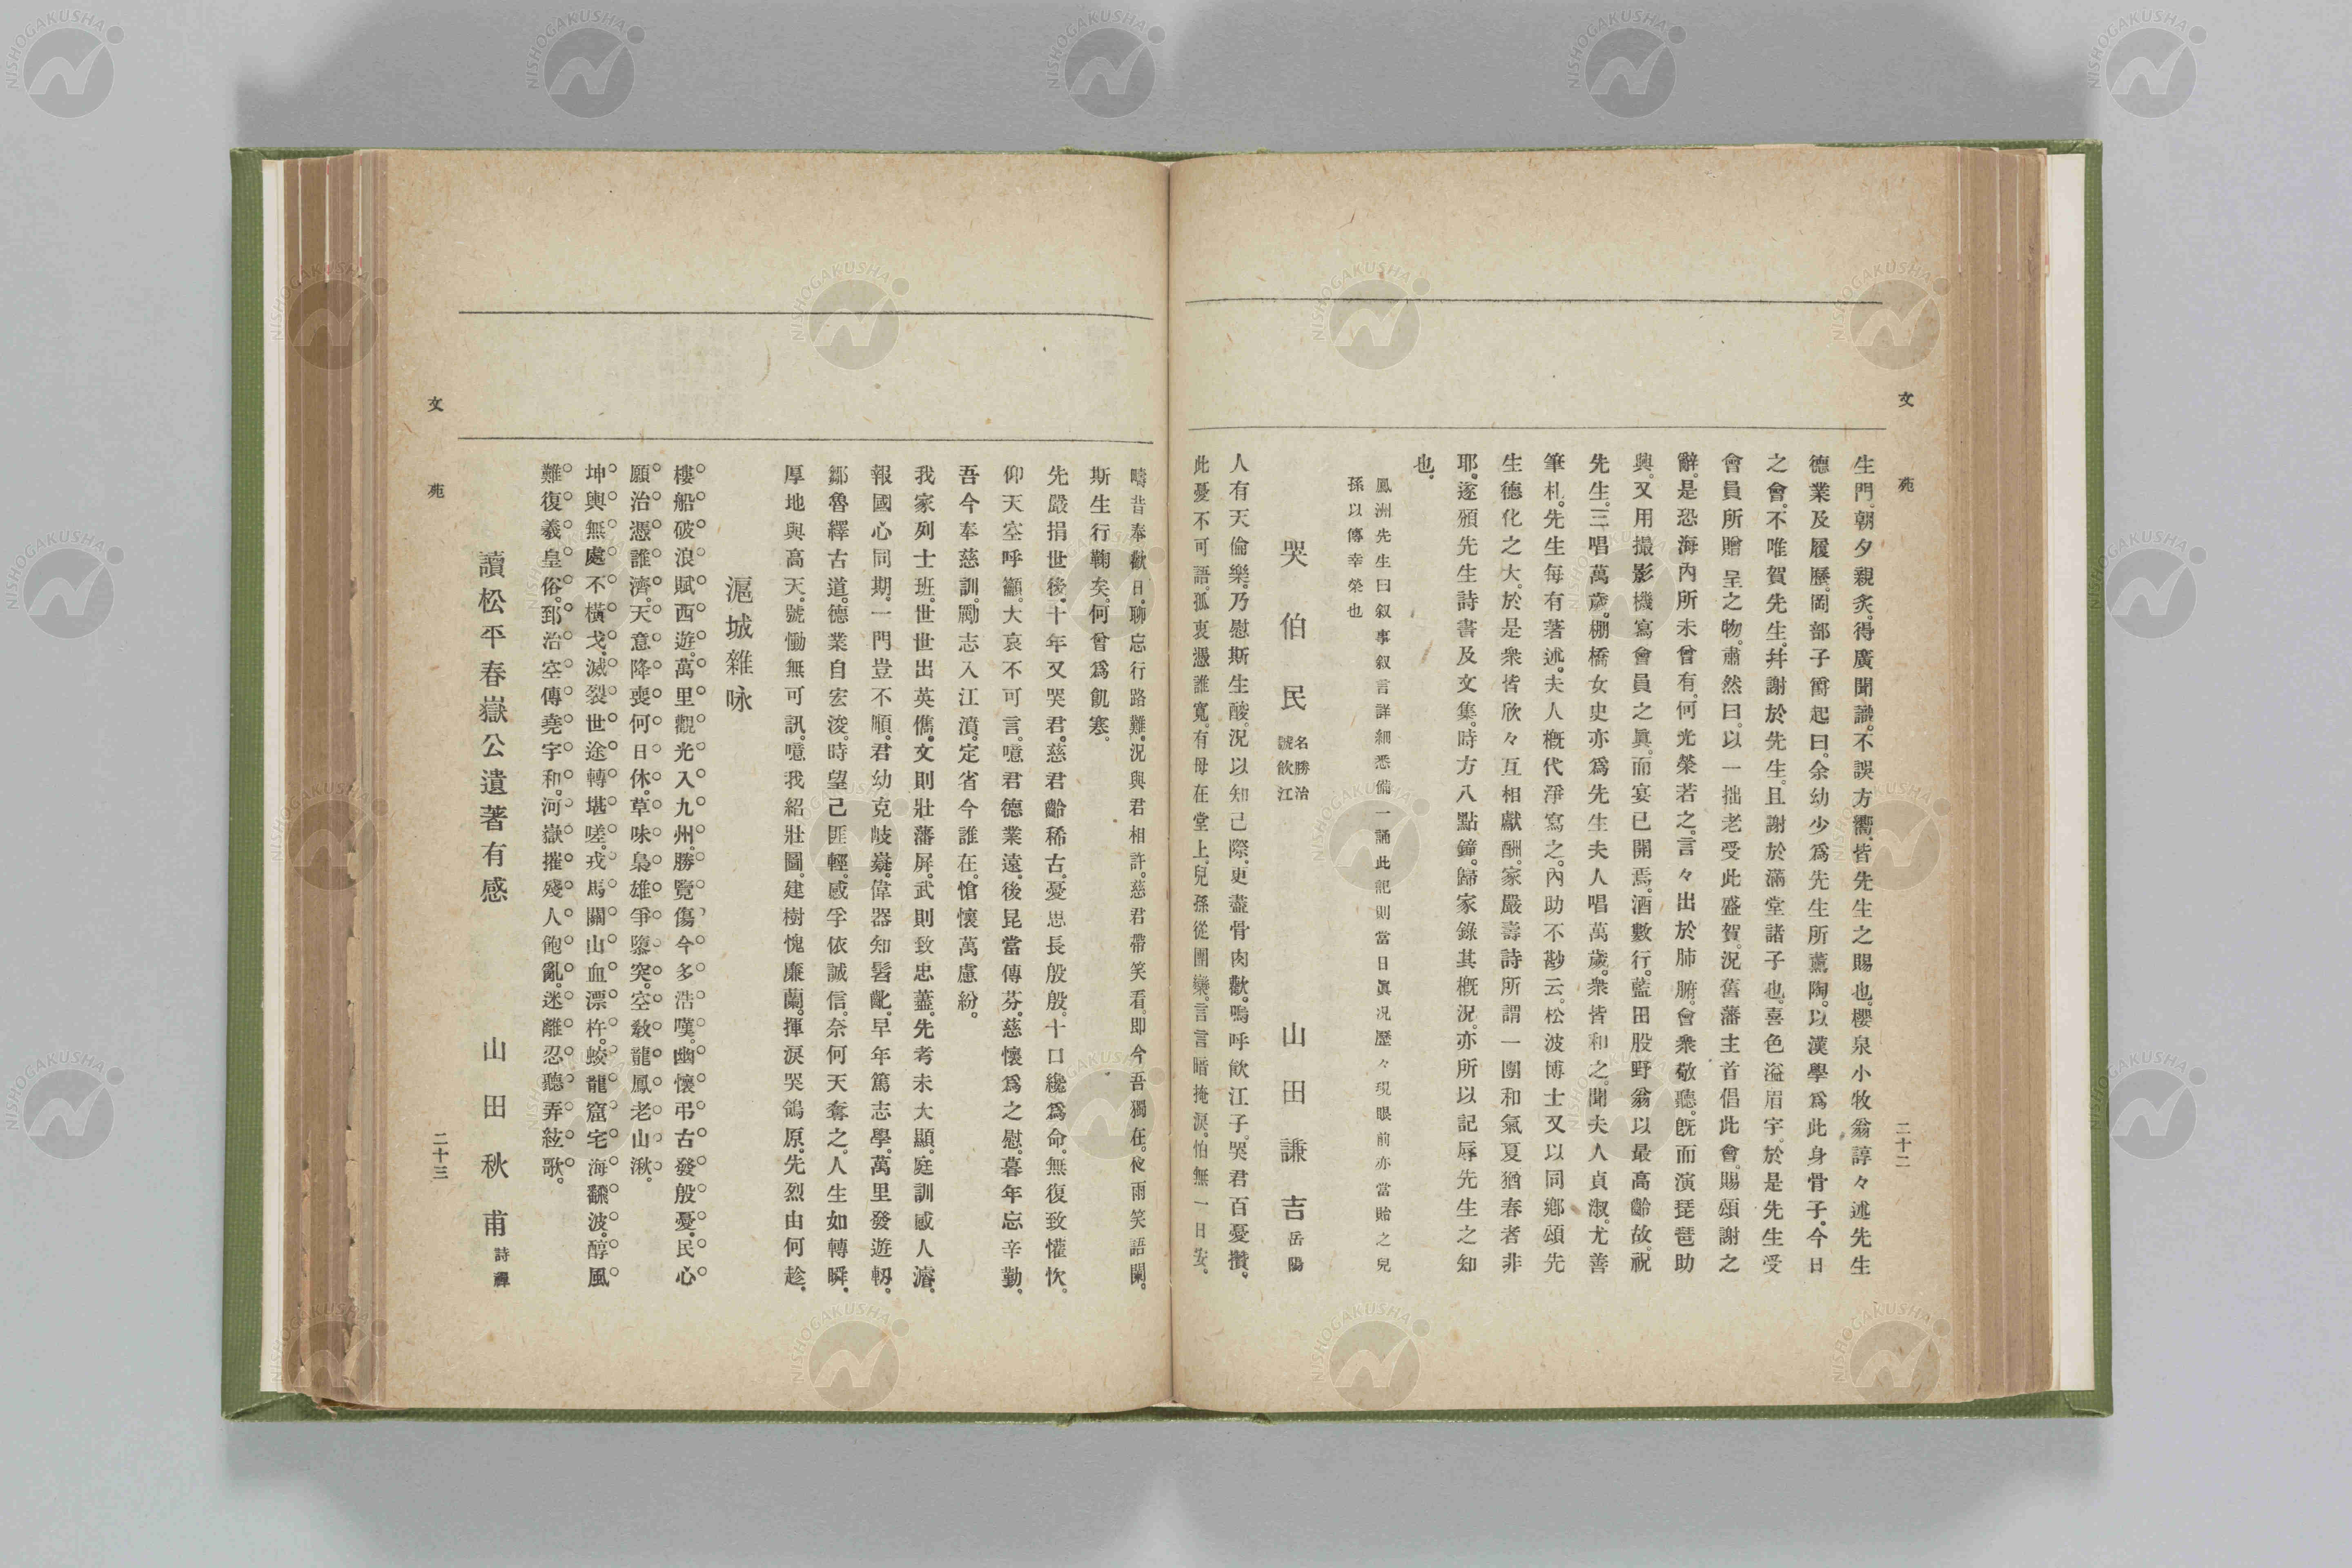 文苑
二十二
生門。朝夕親炙。得廣聞識。不誤方嚮。皆先生之賜也。櫻泉小牧翁諄々述先生
德業及履歷。岡部子爵起曰。余幼少爲先生所薰陶。以漢學爲此身骨子。今日
之會。不唯賀先生。幷謝於先生。且謝於滿堂諸子也。喜色溢眉宇。於是先生受
會員所贈呈之物。肅然曰。以一拙老受此盛賀。況舊藩主首倡此會。賜頌謝之
辭。是恐海內所未曾有。何光榮若之。言々出於肺腑。會衆敬聽。旣而演琵琶助
興。又用撮影機寫會員之眞。而宴已開焉。酒數行。藍田股野翁以最高齡故。祝
先生。三唱萬歲。棚橋女史亦爲先生夫人唱萬歲。衆皆和之。聞夫人貞淑。尤善
筆札。先生每有著述。夫人槪代淨寫之。內助不尠云。松波博士又以同鄕頌先
生德化之大。於是衆皆欣々互相獻酬。家嚴壽詩所謂一團和氣夏猶春者非
耶。遂頒先生詩書及文集。時方八點鐘。歸家錄其槪況。亦所以記辱先生之知
也。
鳳洲先生曰叙事叙言詳細悉備一誦此記則當日眞況歷々現眼前亦當貽之兒
孫以傳幸榮也
哭伯民 名勝治 號飮江 山田謙吉 岳陽
人有天倫樂。乃慰斯生酸。況以知己際。更盡骨肉歡。嗚呼飮江子。哭君百憂攢。
此憂不可語。孤衷憑誰寬。有母在堂上。兒孫從團欒。言言暗掩淚。怕無一日安。
疇昔奉歡日。聊忘行路難。況與君相許。慈君帶笑看。即今吾獨在。夜雨笑語闌。
斯生行鞠矣。何曾爲飢寒。
先嚴捐世後。十年又哭君。慈君齡稀古。憂思長殷殷。十口纔爲命。無復致懽忻。
仰天空呼籲。大哀不可言。噫君德業遠。後昆當傳芬。慈懷爲之慰。暮年忘辛勤。
吾今奉慈訓。勵志入江濆。定省今誰在。愴懷萬慮紛。
我家列士班。世世出英儁。文則壯藩屏。武則致忠藎。先考未大顯。庭訓感人濬。
報國心同期。一門豈不順。君幼克岐嶷。偉器知髫齔。早年篤志學。萬里發遊軔。
鄒魯繹古道。德業自宏浚。時望己匪輕。感孚依誠信。奈何天奪之。人生如轉瞬。
厚地與高天。號慟無可訊。噫我紹壯圖。建樹愧廉藺。揮淚哭鴒原。先烈由何趁。
滬城雜咏
樓船破浪賦西遊。萬里觀光入九州。勝覽傷今多浩嘆。幽懷弔古發殷憂。民心
願治憑誰濟。天意降喪何日休。草味梟雄爭隳突。空敎龍鳳老山湫。
坤輿無處不橫戈。滅裂世途轉堪嗟。戎馬關山血漂杵。蛟龍窟宅海飜波。醇風
難復羲皇俗。郅治空傳堯宇和。河嶽摧殘人飽亂。迷離忍聽弄絃歌。
讀松平春嶽公遺著有感 山田秋甫 詩禪
文苑
二十三